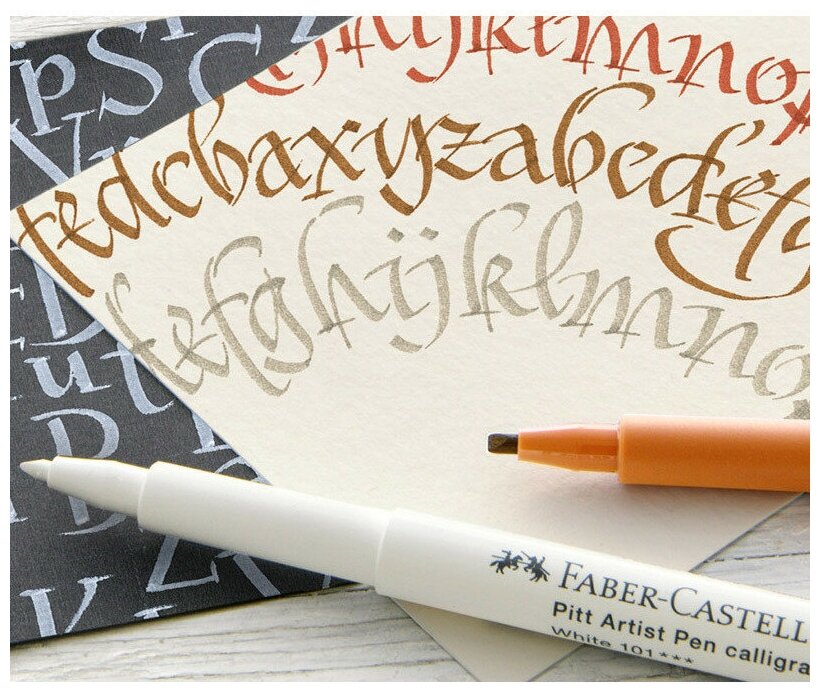 hijklmno
fedcbaxyzabcdefg
fefghijklmno
pS
ut
B
FABER-CASTELL
Pitt Artist Pen calligra
White 101***